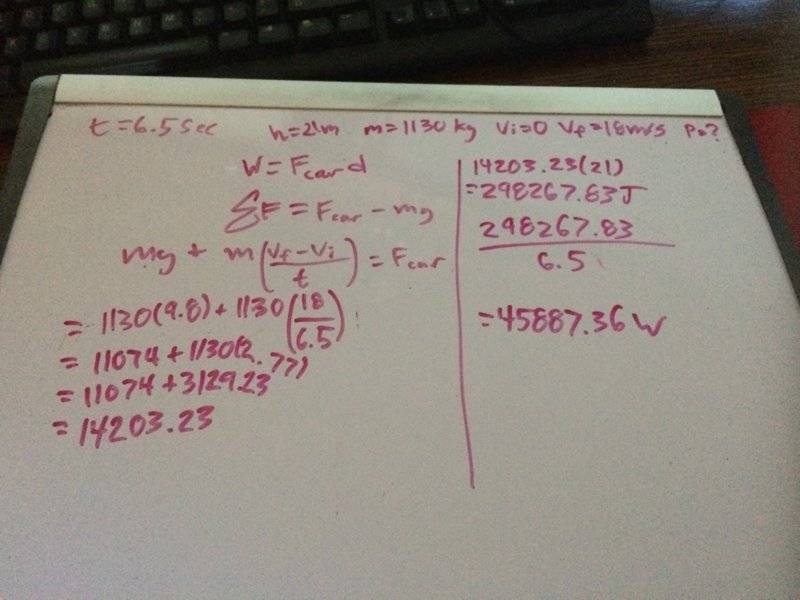 t = 6.5 sec h = 21m m = 1130 kg Vi = 0 Vf = 18 m/s P = ?
W = Fcar d
ΣF = Fcar - mg
mg + m((Vf - Vi)/t) = Fcar
= 1130(9.8) + 1130(18/6.5)
= 11074 + 1130(2.77)
= 11074 + 3129.23
= 14203.23
14203.23(21)
= 298267.83 J
298267.83
6.5
= 45887.36 W